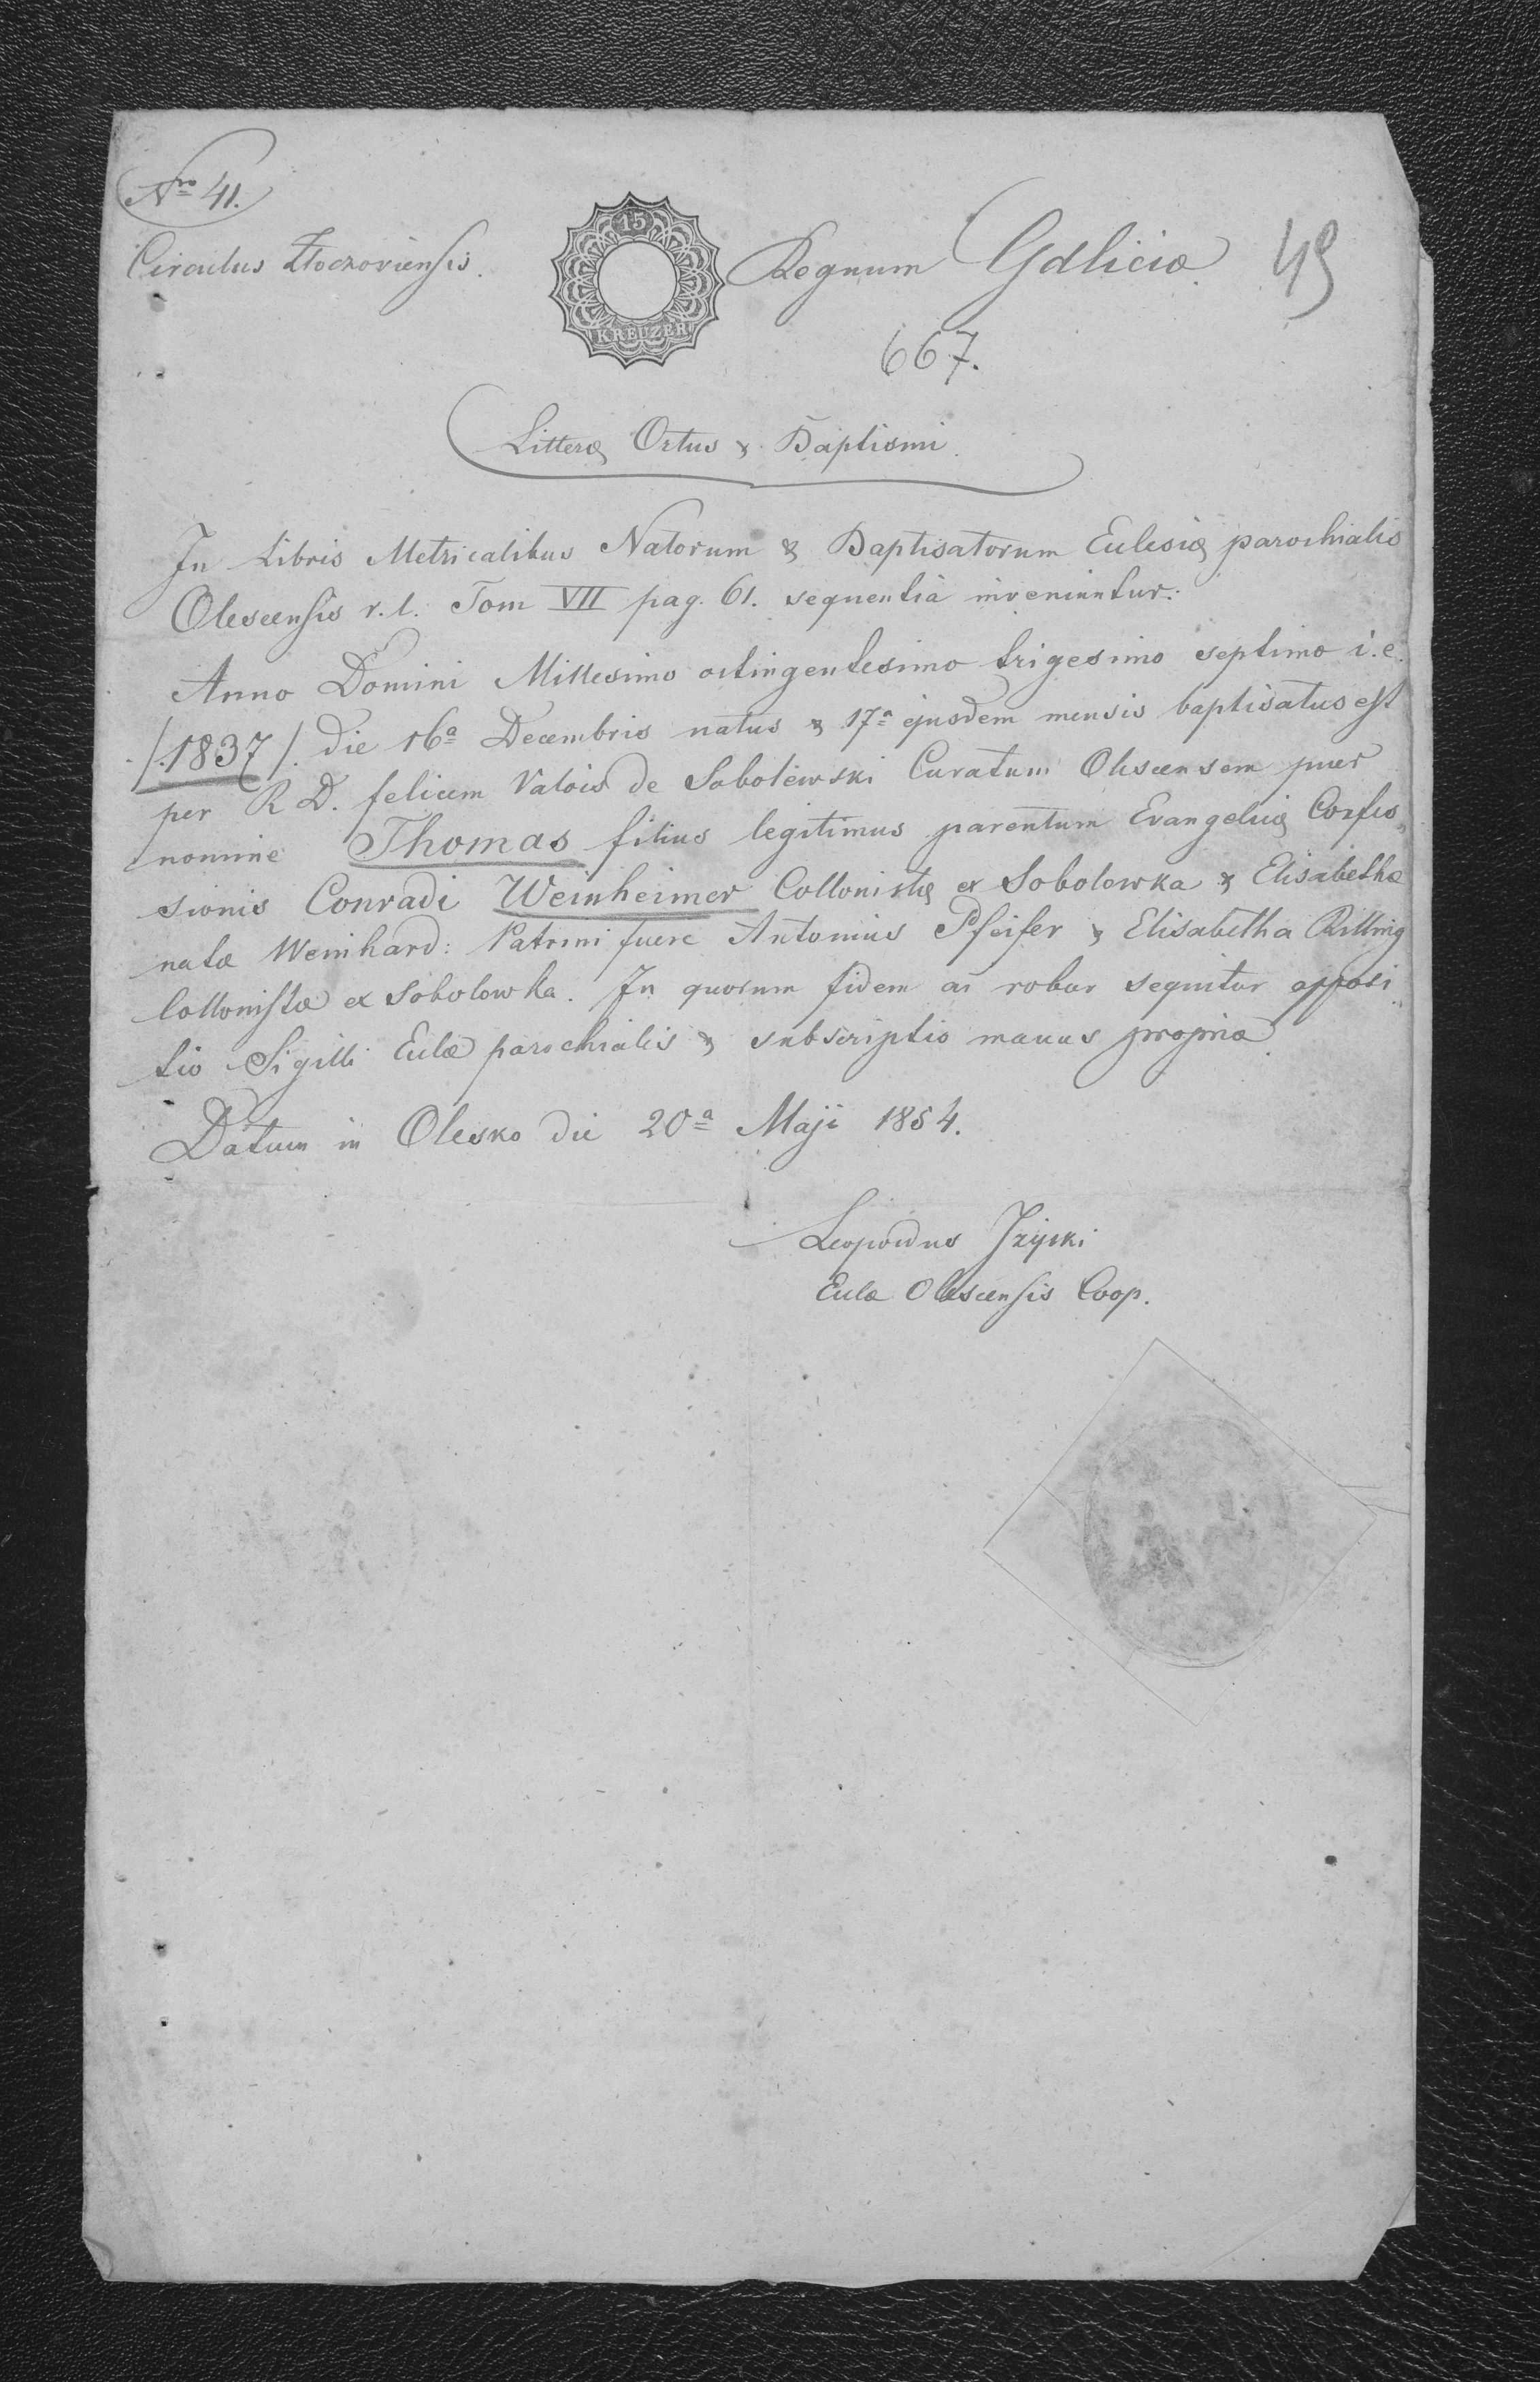 Nro 41.
Circulus Złoczoviensis.
15
KREUZER
Regnum Galiciæ.
49
667.
Litteræ Ortus & Baptismi.
In Libris Metricalibus Natorum & Baptisatorum Eclesiæ parochialis
Olescensis r. l. Tom VII pag. 61. sequentia inveniuntur:
Anno Domini Millesimo octingentesimo trigesimo septimo i. e.
/.1837/. die 16a Decembris natus & 17a ejusdem mensis baptisatus est
per R D. felicem Valois de Sobolewski Curatum Olescensem puer
nomine Thomas filius legitimus parentum Evangelicæ Confes„
sionis Conradi Weinheimer Collonistæ ex Sobolowka & Elisabethæ
natæ Weinhard: Patrini fuere Antonius Pfeifer & Elisabetha Rilling
Collonistæ ex Sobolowka. In quorum fidem ac robur sequitur apposi„
tio Sigilli Eclæ parochialis & subscriptio manus propriæ.
Datum in Olesko die 20a Maji 1854.
Leopoldus
Eclæ Olescensis Coop.